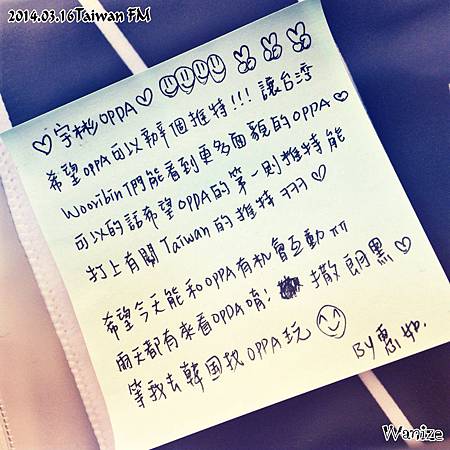 2014.03.16Taiwan FM
♡宇彬OPPA♡
希望OPPA可以辦個推特!!! 讓台灣
Wooribin們能看到更多面貌的OPPA♡
可以的話希望OPPA的第一則推特能
打上有關Taiwan的推特 ㅋㅋㅋ♡
希望今天能和OPPA有机會互動 ㅠㅠ
兩天都有來看OPPA唷! 撒朗黑♡
等我去韓国找OPPA玩
BY 惠如.
Wanize